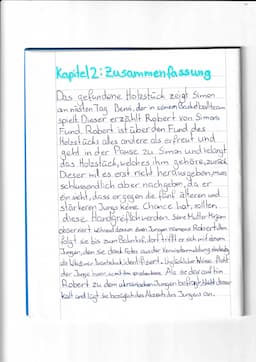 Kapitel 2: Zusammenfassung
Das gefundene Holzstück zeigt Simon
am nächsten Tag Benni, der in seinem Basketballteam
spielt. Dieser erzählt Robert von Simons
Fund. Robert ist über den Fund des
Holzstücks alles andere als erfreut und
geht in der Pause zu Simon und verlangt
das Holzstück, welches ihm gehöre, zurück.
Dieser will es erst nicht herausgeben, muss
schlussendlich aber nachgeben, da er
einsieht, dass er gegen die fünf älteren und
stärkeren Jungs keine Chance hat, sollten
diese Handgreiflich werden. Seine Mutter
observiert während dessen einen Jungen namens Robert. Sie
folgt sie bis zum Bahnhof, dort trifft er sich mit einem
Jungen, den sie dank Fotos aus der
als
der Junge
Robert zu dem ukrainischen Jungen befragt, bleibt dieser
kalt und lügt sie bezüglich des Akzents des Jungen an.